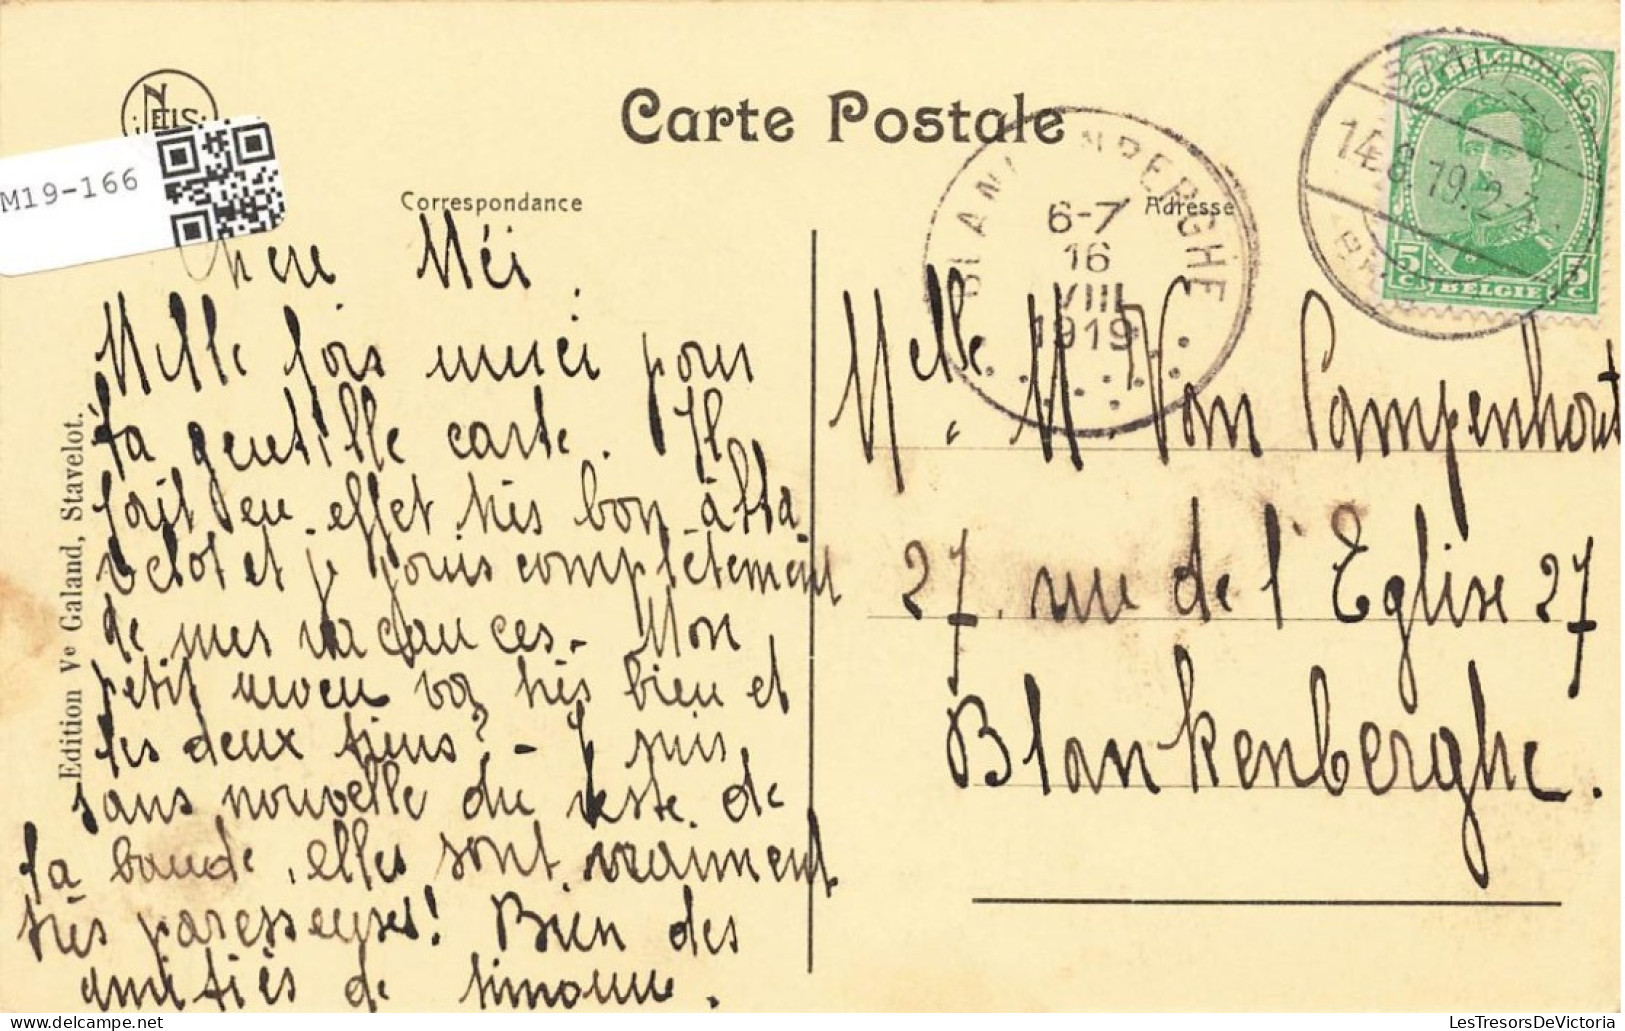 NELS
M19-166
Carte Postale
Correspondance
Adresse
BLANKENBERGHE
6-7
16
VIII
1919
14.8.19.2-3
BELGIQUE
5 C BELGIE 5 C
Edition Ve Galand, Stavelot.
Chère Méi
Mille fois merci pour
ta gentille carte. Il
fait en effet très bon à Sta
velot et je jouis complètement
de mes vacances - Mon
petit neveu va très bien et
les deux tiens? - Je suis
sans nouvelle du reste de
la bande, elles sont vraiment
très paresseuses! Bien des
amitiés de Simonne.
Melle M. Van Campenhout
27, rue de l'Eglise 27
Blankenberghe.
LesTresorsDeVictoria.com